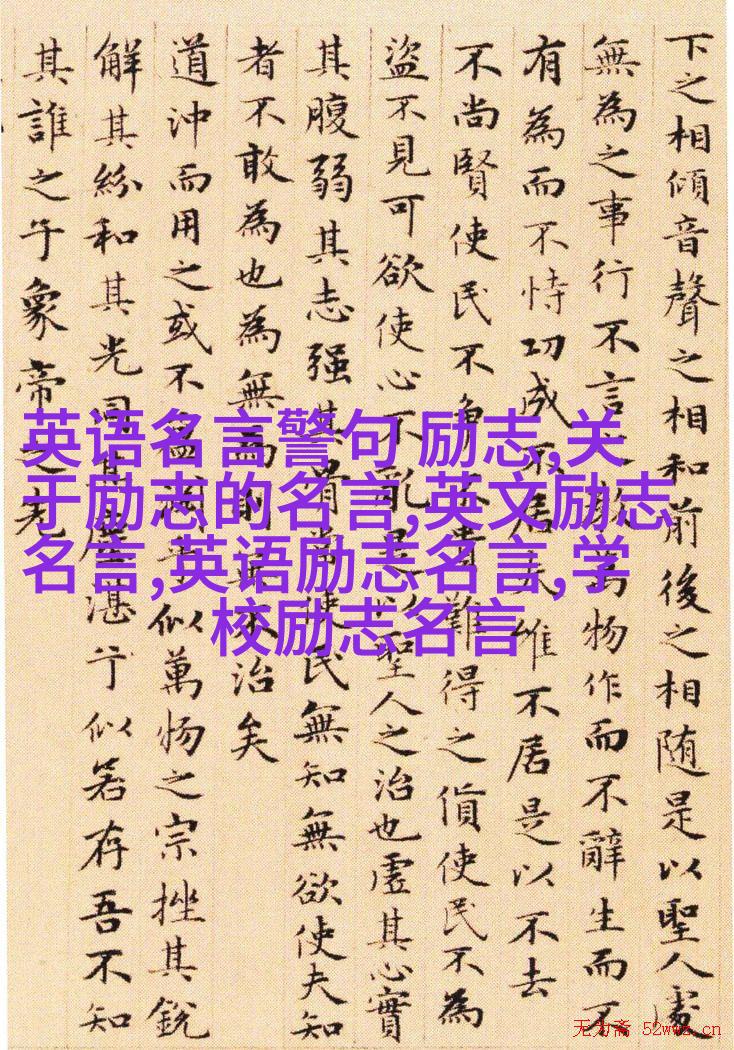 下之相傾音聲之相和前後之相随是以聖人處
無為之事行不言之教萬物作而不辭生而不
有為而不恃功成不居夫惟不居是以不去
不尚賢使民不爭不貴難得之貨使民不為
盜不見可欲使心不亂是以聖人之治也虛其心實
其腹弱其志强其骨常使民無知無欲使夫知
者不敢為也為無為則無不治矣
道沖而用之或不盈淵乎似萬物之宗挫其銳
解其紛和其光同其塵湛兮似若存吾不知
其誰之子象帝之先
英语名言警句 励志,关
于励志的名言,英文励志
名言,英语励志名言,学
校励志名言
无为斋 52wwz.cn